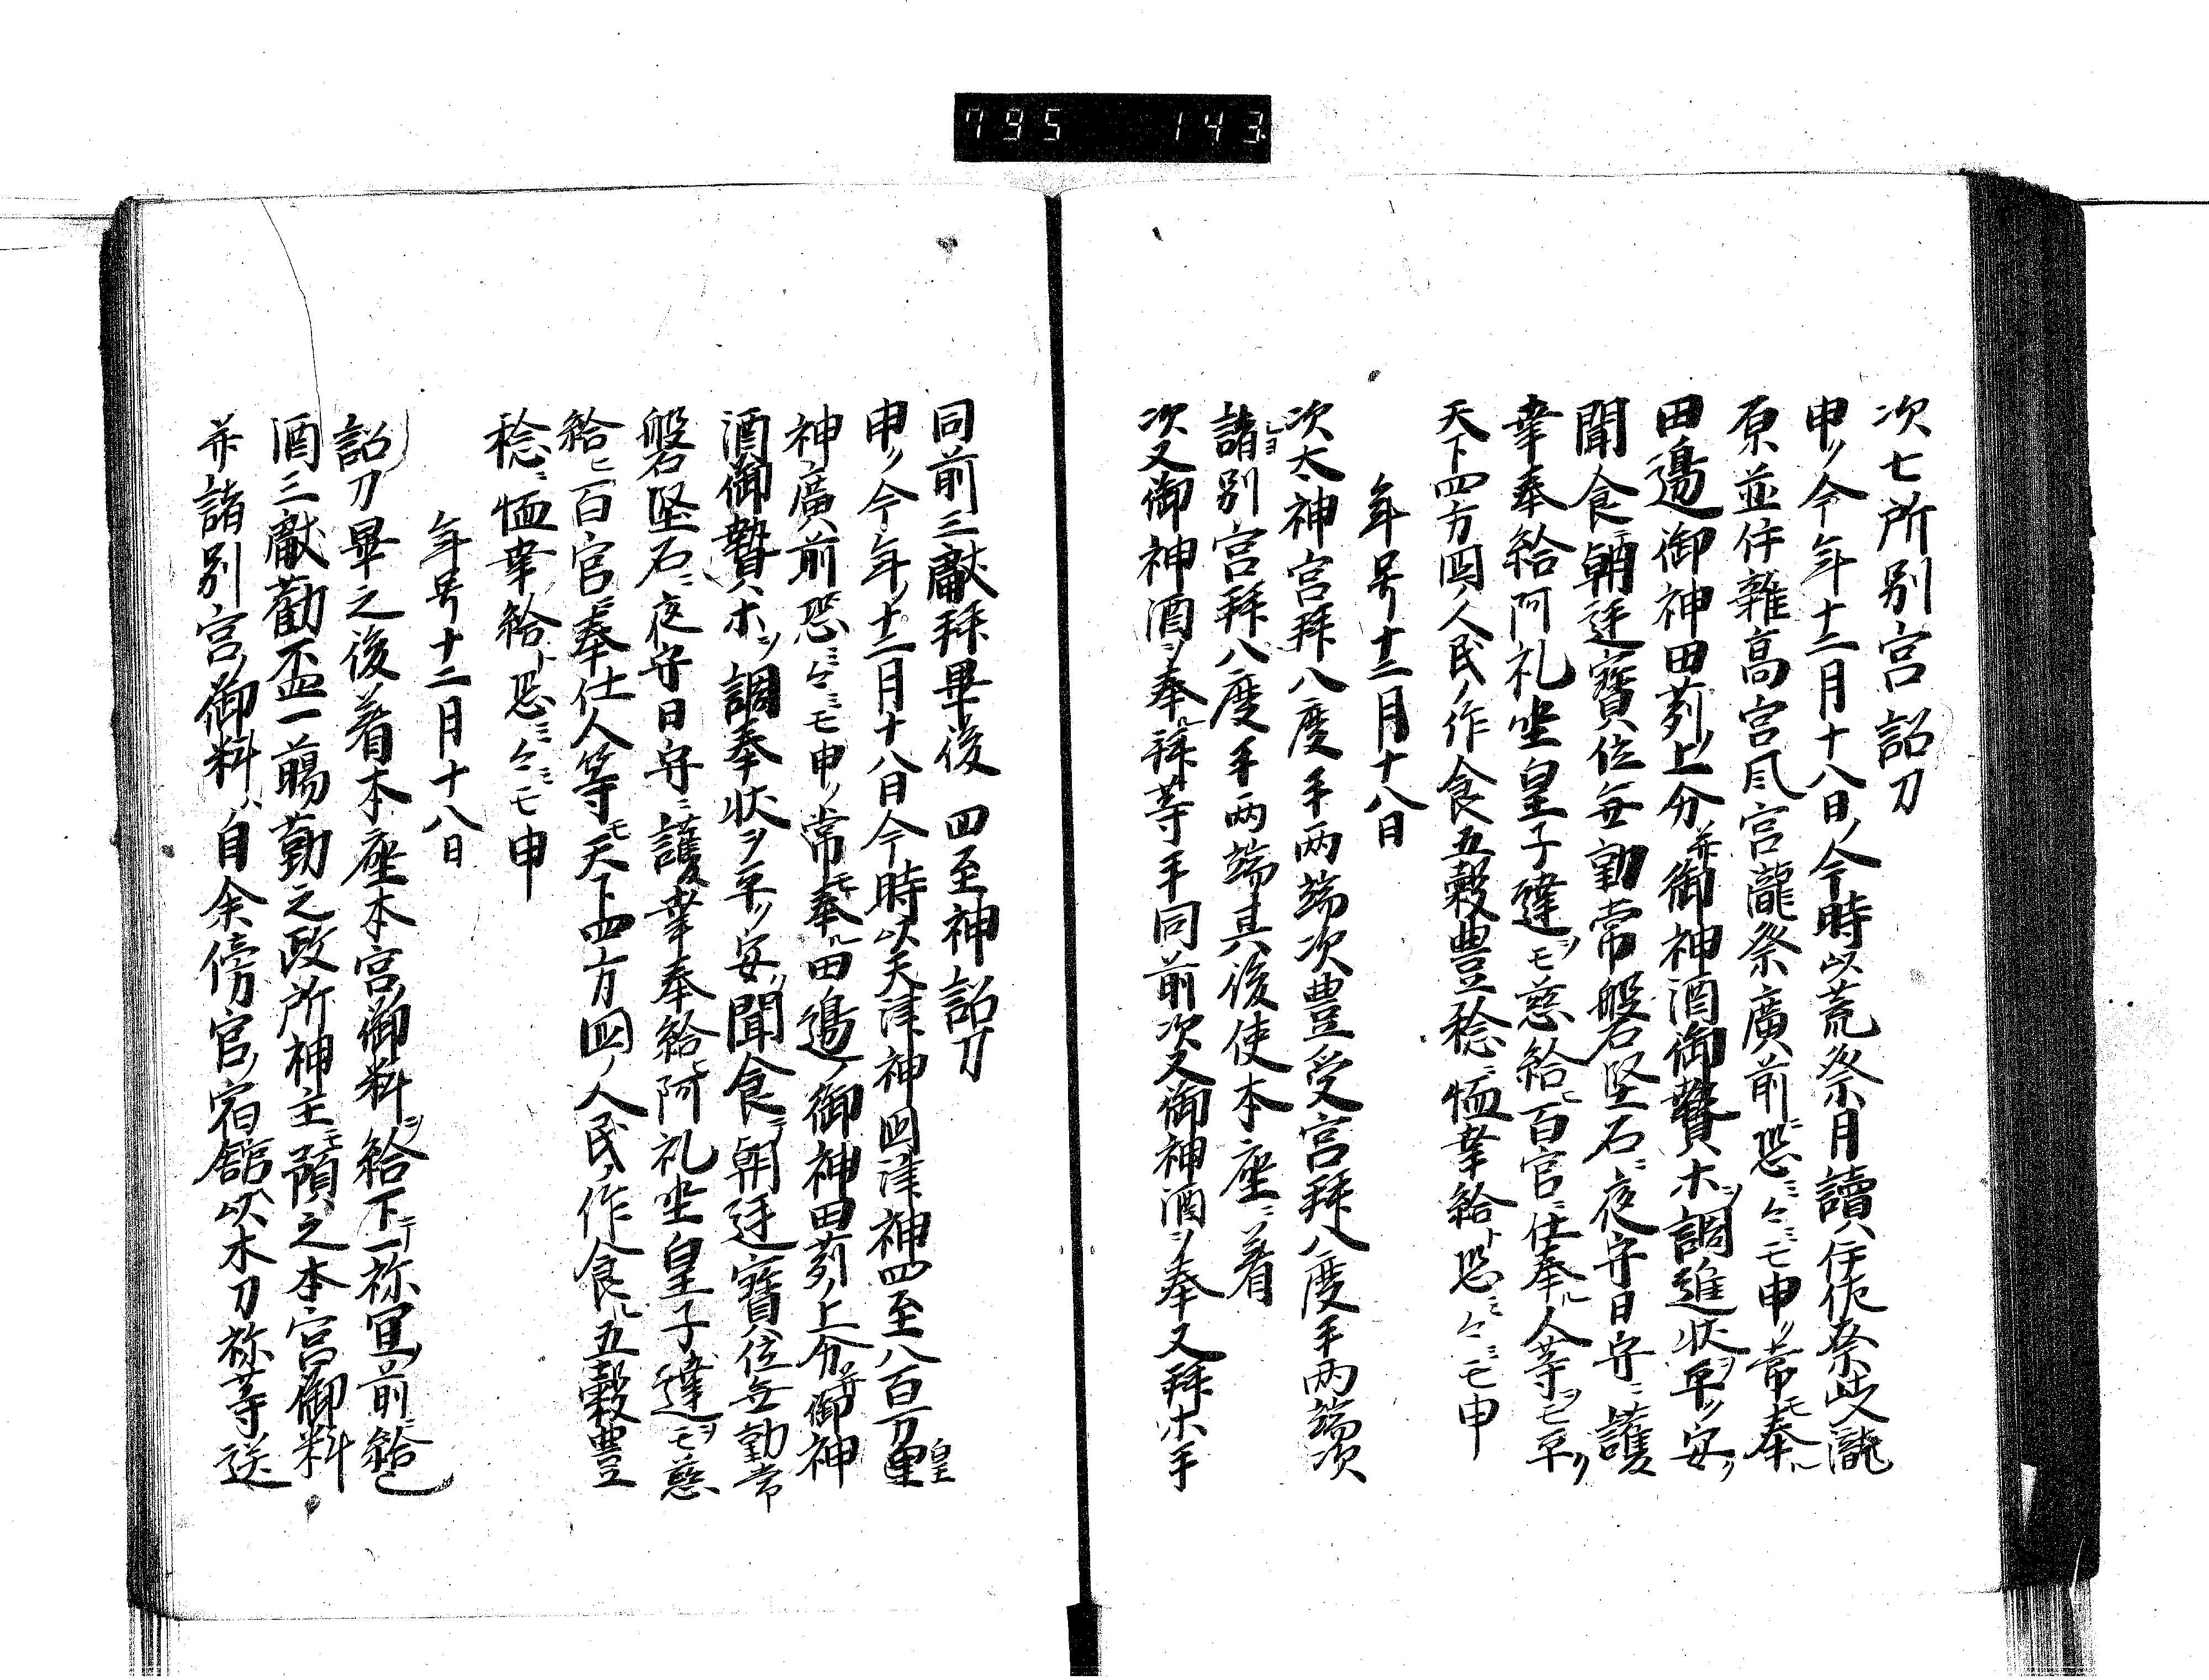 795 143
次七所別宮詔刀
申ク今年十二月十八日ノ今時以荒祭月讀八伊佐奈岐瀧
原並伊雜高宮風宮瀧祭廣前恐ミ々ミモ申ク常モ奉ル
田邊御神田苅上分并御神酒御贄木ヲ調進状ヲ平ク安ク
聞食朝廷寳位無動常磐堅石ニ夜守日守ニ護
幸奉給阿礼坐皇子達ヲモ慈給百官ニ仕奉人等ヲモ平ク
天下四方国ノ人民ノ作食五穀豊稔ニ恤幸給ト恐ミ々ミモ申
年号十二月十八日
次太神宮拜八度手両端次豊受宮拜八度手両端次
諸別宮拜八度手両端其後使本座ニ着
次又御神酒ヲ奉拜等手同前次又御神酒ヲ奉又拜木手
同前三献拜畢後四至神詔刀
申ク今年ノ十二月十八日今時以天津神国津神四至八百万皇
神廣前恐ミ々ミモ申ク常モ奉田邊御神田苅ノ上分并御神
酒御贄木ヲ調奉状ヲ平ク安ク聞食朝廷寳位無動常
磐堅石ニ夜守日守ニ護幸奉給阿礼坐皇子達ヲモ慈
給ヒ百官ニ奉仕人等モ天下四方国ノ人民ノ作食五穀豊
稔ニ恤幸給ト恐ミ々ミモ申
年号十二月十八日
詔刀畢之後着本座本宮御料ヲ給下一祢宜前ニ給
酒三献勸盃一臈勤之政所神主預之本宮御料
并諸別宮御料自余傍官ノ宿舘以木刀祢等送